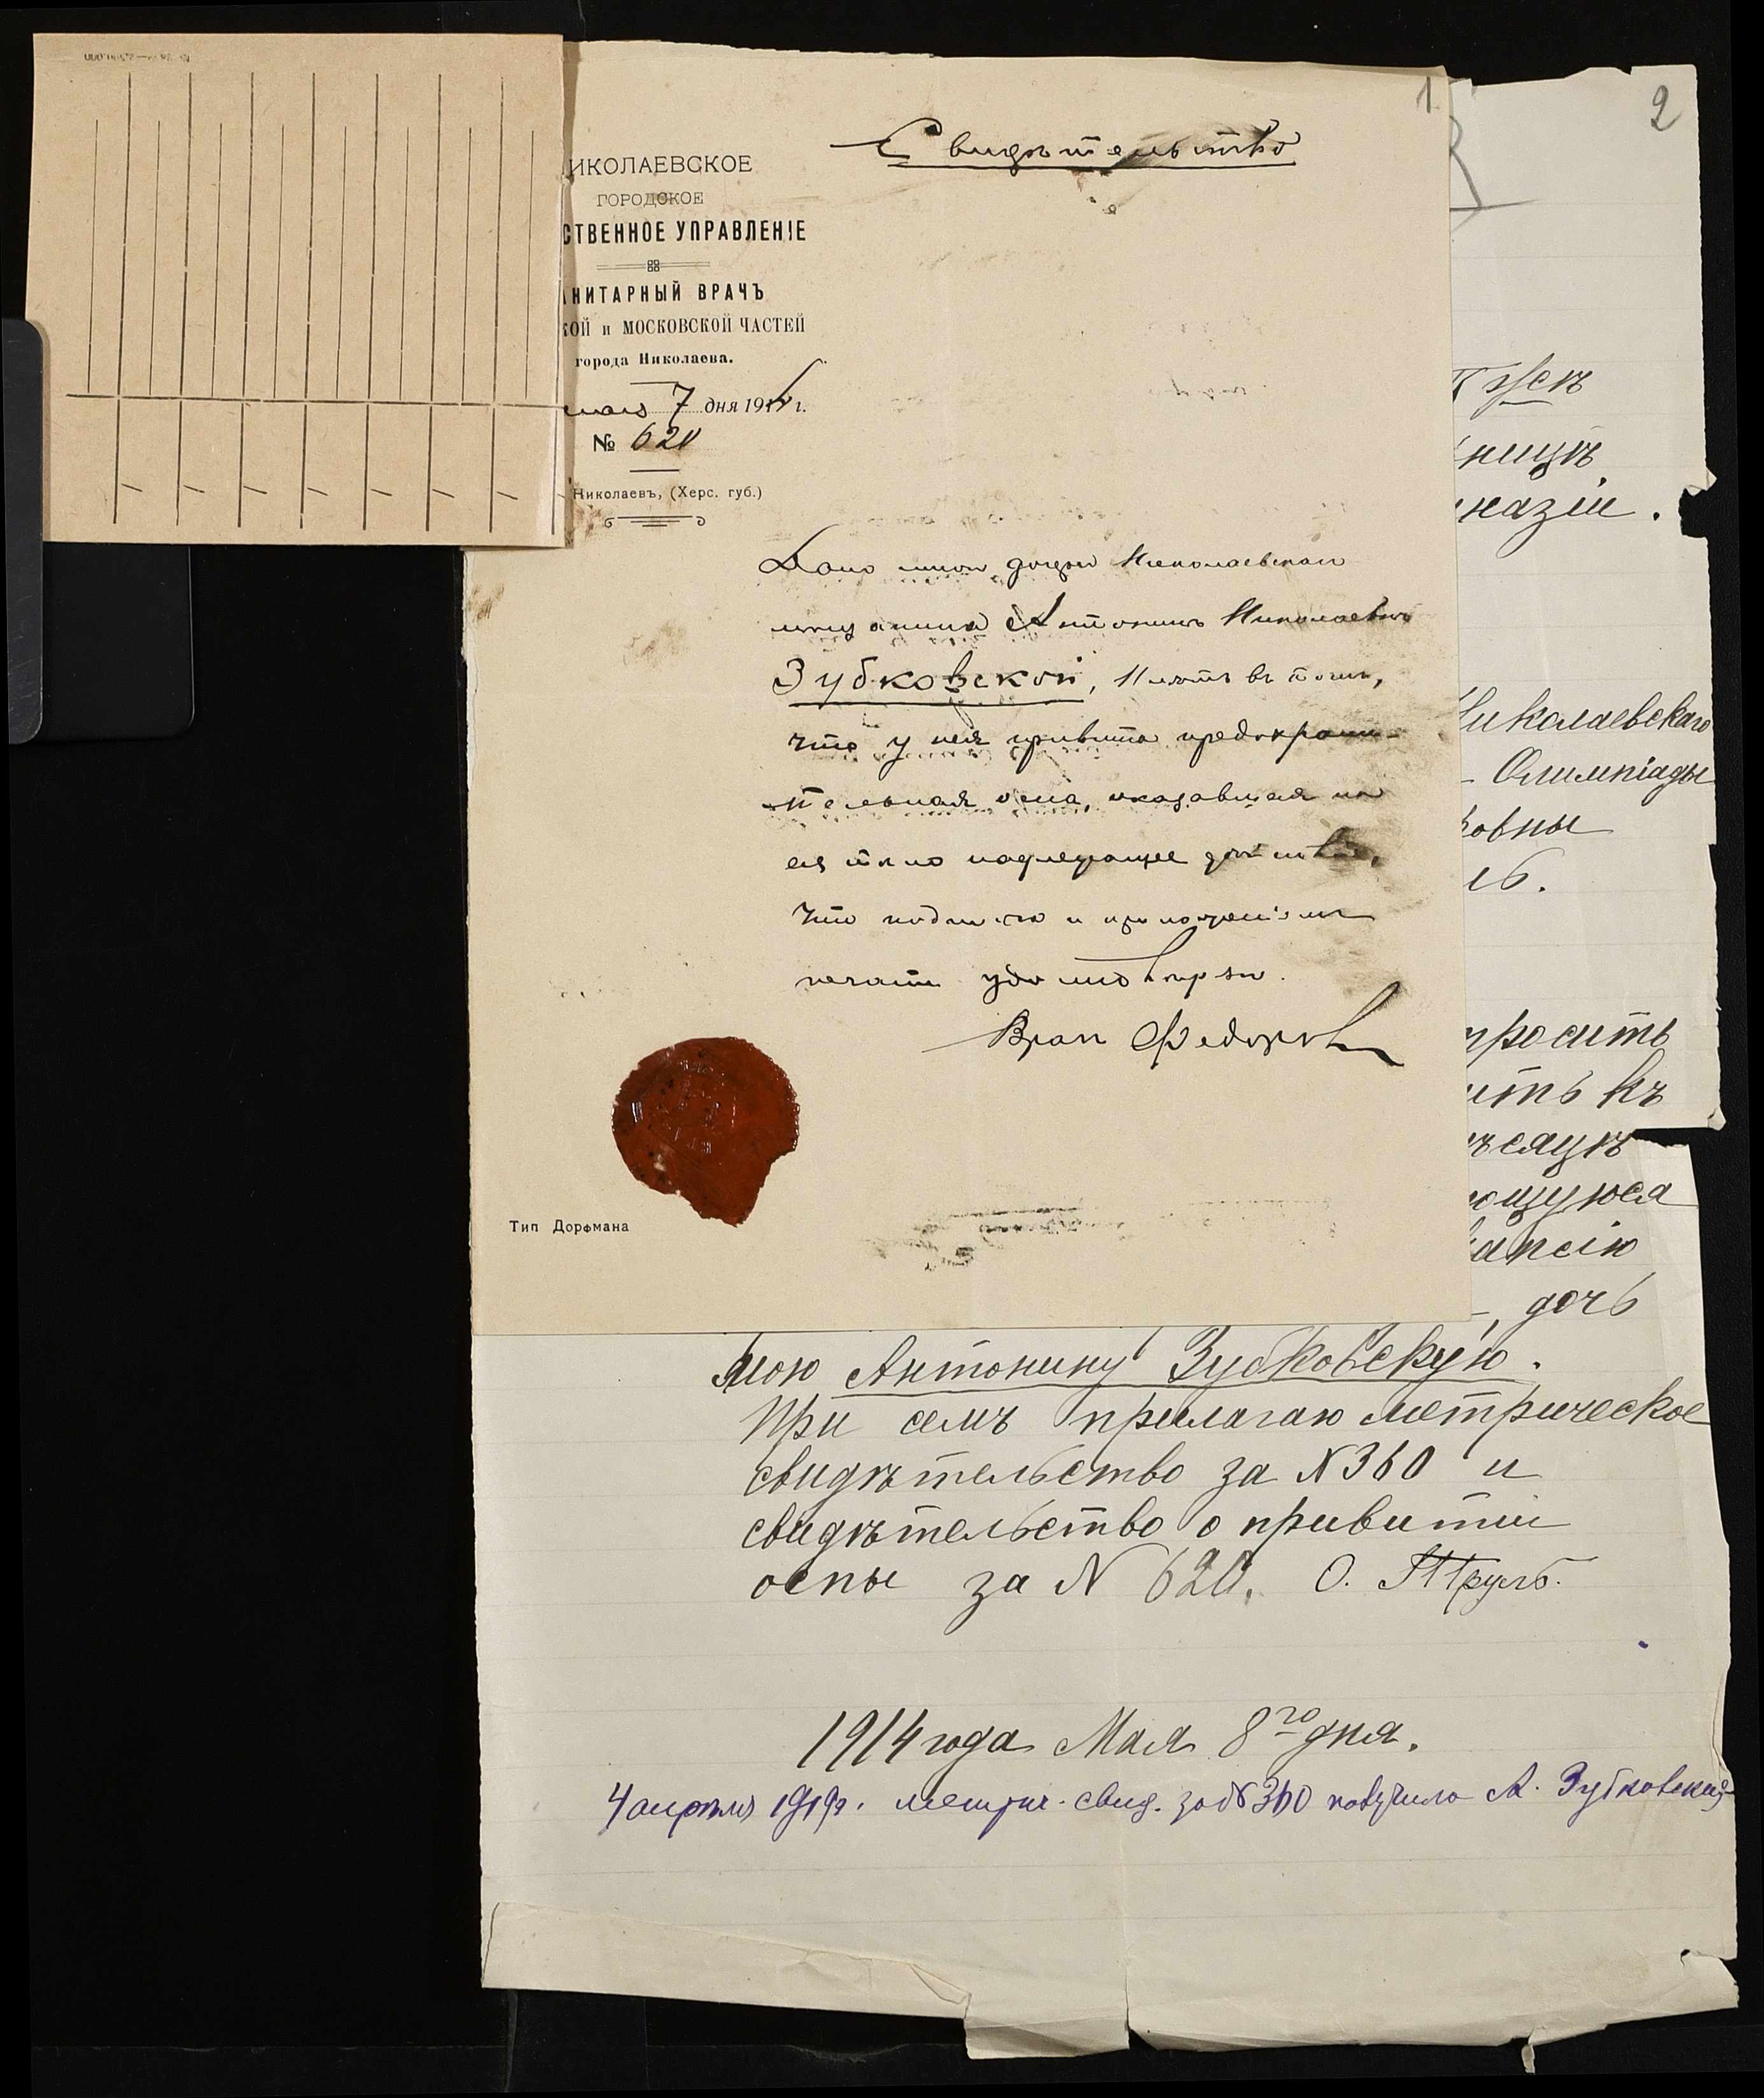 1
2
Свидѣтельство
ИКОЛАЕВСКОЕ
ГОРОДСКОЕ
СТВЕННОЕ УПРАВЛЕНІЕ
НИТАРНЫЙ ВРАЧЪ
КОЙ и МОСКОВСКОЙ ЧАСТЕЙ
города Николаева.
мая 7 дня 1914 г.
№ 620
Николаевъ, (Херс. губ.)
Дано дочери Николаевскаго
мѣщанина Антонинѣ Николаевнѣ
Зубковской, въ томъ,
что у нея привита предохрани-
тельная оспа, оказавшая на
ея тѣло надлежащее дѣйствіе,
что подписью и приложеніемъ
печати удостовѣряю.
Врач Федоров
Тип Дорфмана
ницѣ
назіи.
Николаевскаго
Олимпіады
ковны
ль.
просить
ить къ
ѣсяцѣ
ющуюся
кансію
, дочь
мою Антонину Зубковскую.
При семъ прилагаю метрическое
свидѣтельство за N 360 и
свидѣтельство о привитіи
оспы за N 620. О.
1914 года Мая 8го дня.
4 апрѣля 1919г. метрич. свид. за № 360 получила А. Зубковская